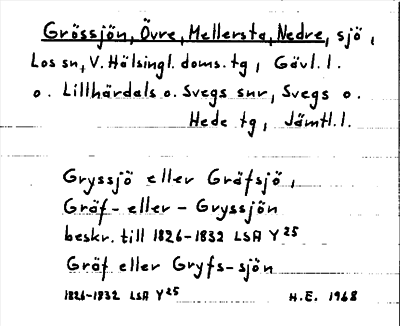 Grössjön, Övre, Mellersta, Nedre, sjö,
Los sn, V. Hälsingl. doms. tg, Gävl. l.
o. Lillhärdals o. Svegs snr, Svegs o.
Hede tg, Jämtl. l.
Gryssjö eller Gräfsjö,
Gräf- eller - Gryssjön
beskr. till 1826-1832 LSA Y25
Gräf eller Gryfs-sjön
1826-1832 LSA Y25 H.E. 1968